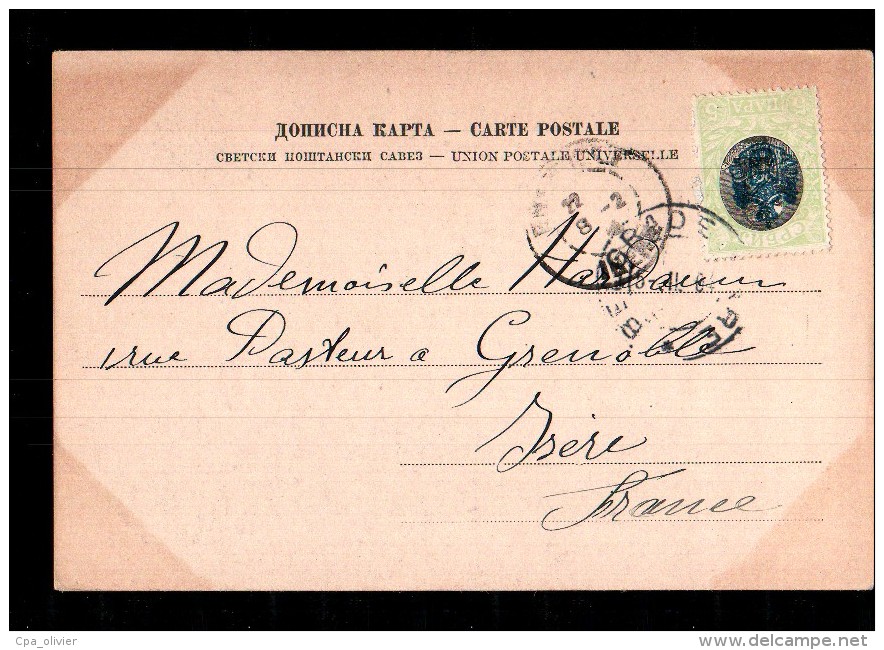 ДОПИСНА КАРТА — CARTE POSTALE
СВЕТСКИ ПОШТАНСКИ САВЕЗ — UNION POSTALE UNIVERSELLE
5 ПАРА 5
Mademoiselle
1 rue Pasteur a Grenoble
Isère
France
Cpa_olivier
www.delcampe.net